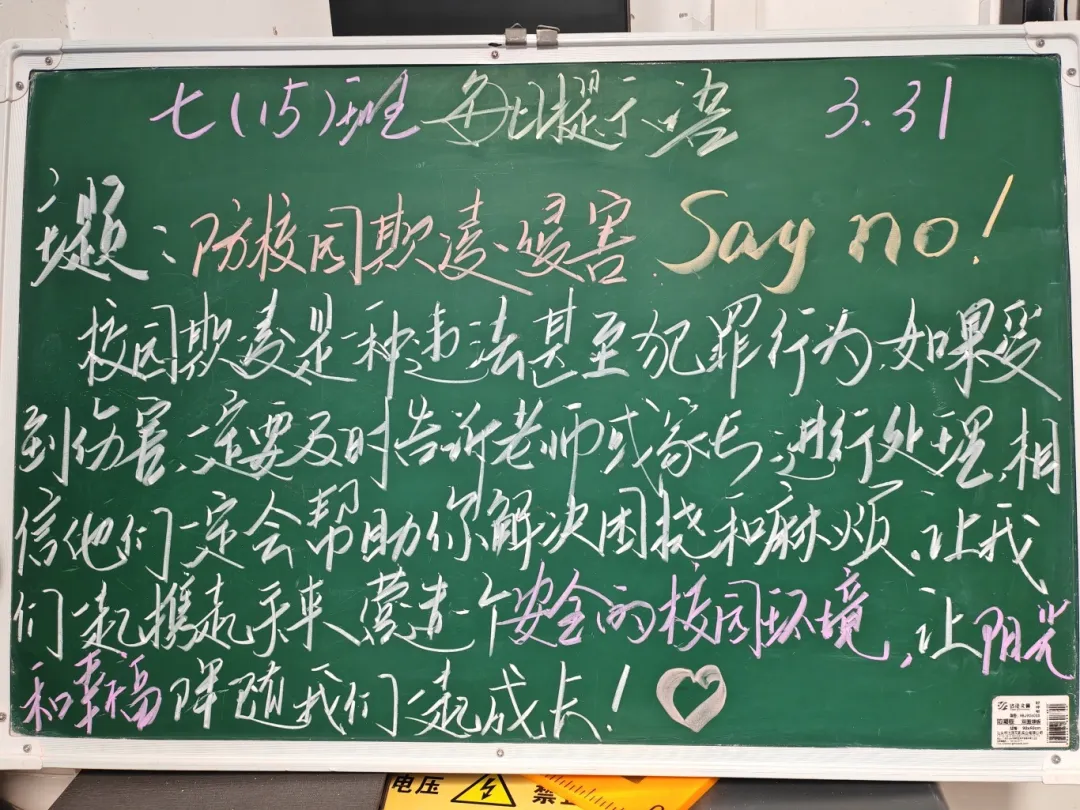 七(15)班 每日提示语 3.31
主题：防校园欺凌、侵害 Say no!
校园欺凌是一种违法甚至犯罪行为,如果受
到伤害,一定要及时告诉老师或家长,进行处理,相
信他们一定会帮助你解决困扰和麻烦,让我
们一起携起手来,营造一个安全的校园环境,让阳光
和幸福伴随我们一起成长!
电压